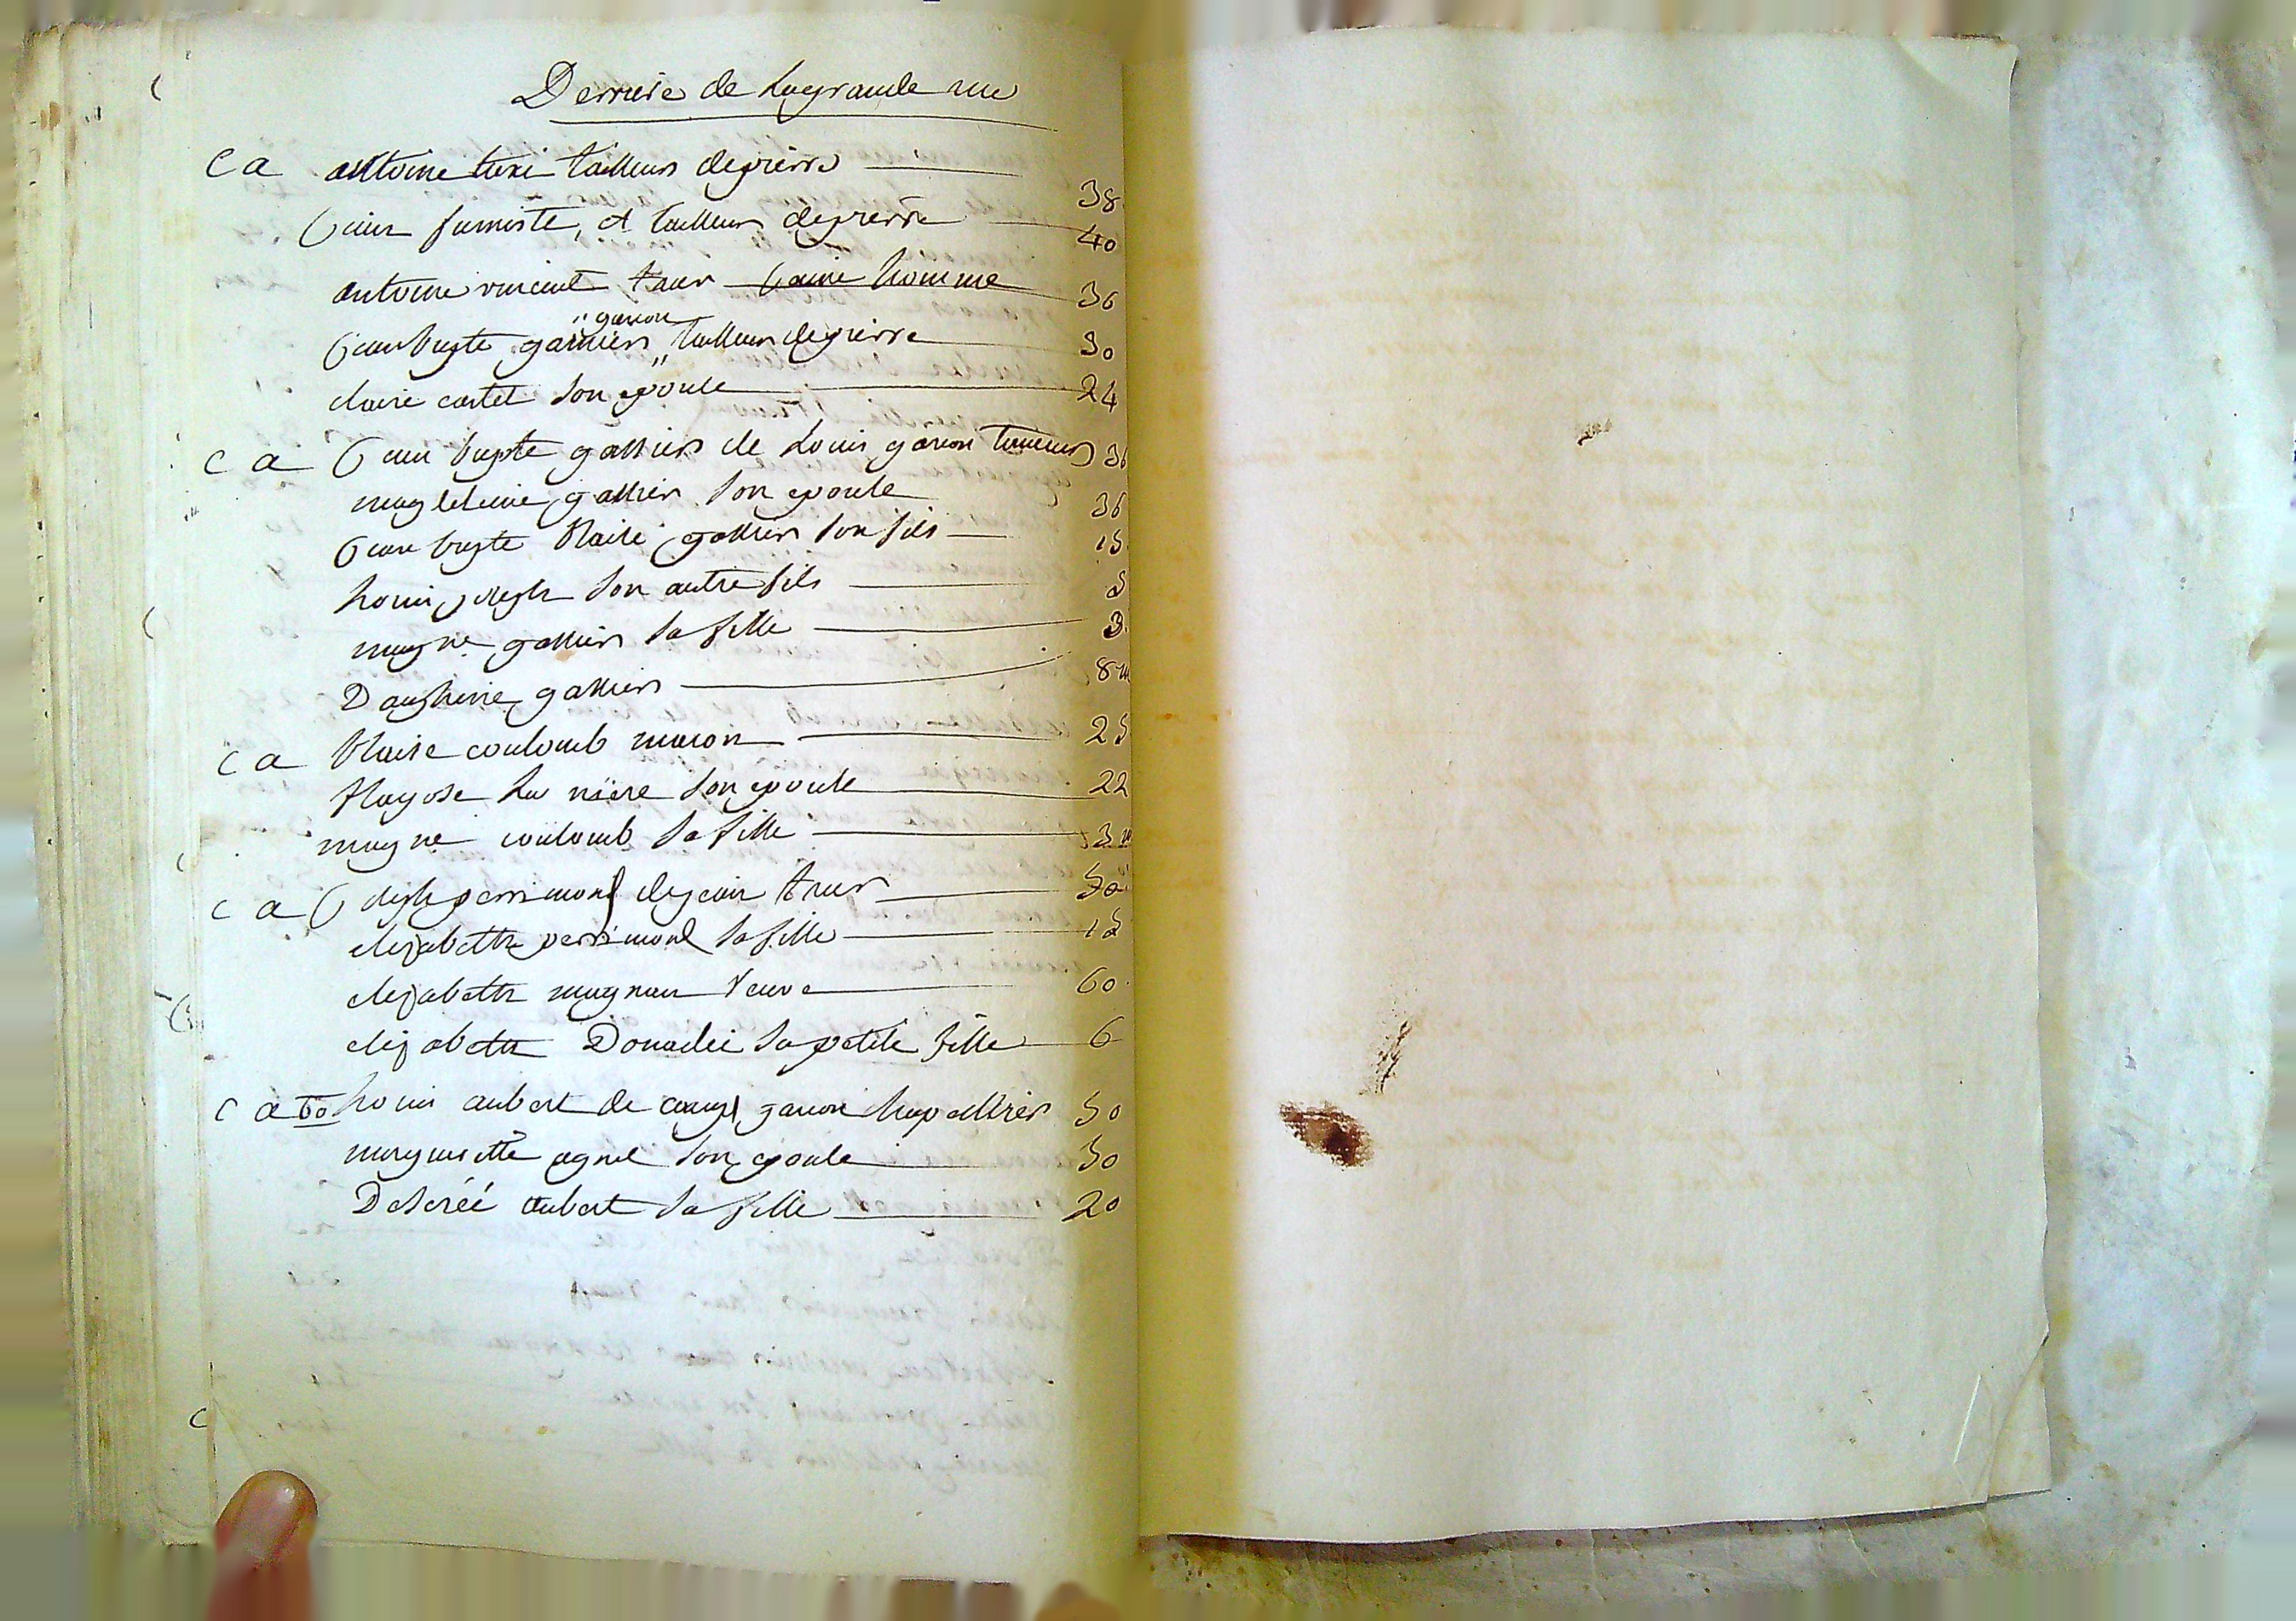 Derriere de la grande rue
C a antoine tien tailleur de pierre 38
Jean fumiste, et tailleur de pierre 40
antoine vincent trav Jeune homme 36
"garcon
Jean bapte garnier " tailleur de pierre 30
claire castel son epouse 24
c a Jean bapte gattier de Louis garcon tanneur 36
magdeleine gattier son epouse 36
Jean bapte blaise gattier son fils 15
Louis, Joseph son autre fils 5
magne gattier sa fille 3
Dauphine gattier 8 m
c a blaise coulomb macon 25
son epouse 22
magne coulomb sa fille 3 m
c a Joseph perrimond de jean trav 50
elizabeth perrimond sa fille 15
elizabeth magnan veuve 60
elizabeth Donadei sa petite fille 6
c a 60 Louis aubert de garcon chapellier 50
margueritte agnel son epouse 50
Desirée aubert sa fille 20